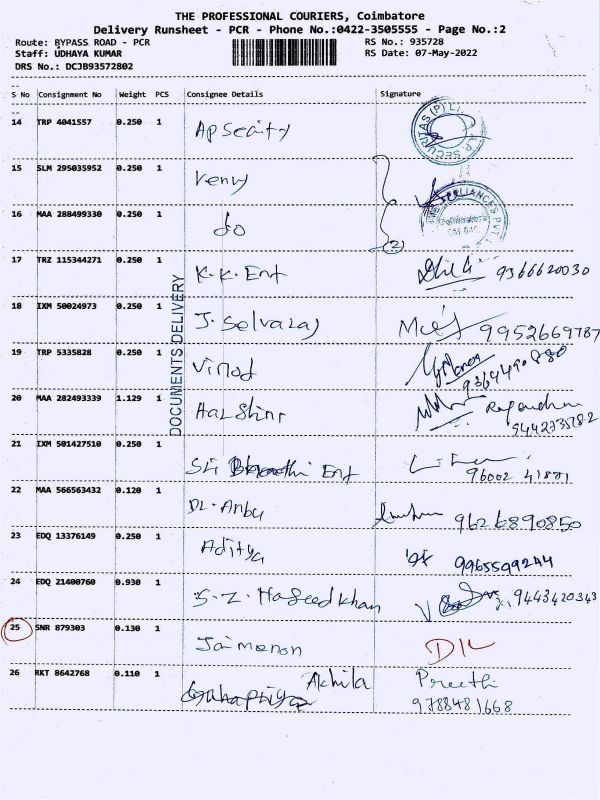 THE PROFESSIONAL COURIERS, Coimbatore
Delivery Runsheet - PCR - Phone No.:0422-3505555 - Page No.:2
Route: BYPASS ROAD - PCR
RS No.: 935728
Staff: UDHAYA KUMAR
RS Date: 07-May-2022
DRS No.: DCJB93572802
S No Consignment No Weight PCS Consignee Details Signature
14 TRP 4041557 0.250 1
15 SLM 295035952 0.250 1 Venus
16 MAA 288499330 0.250 1 do
(2)
17 TRZ 115344271 0.250 1 K.K. Ent 9366620030
18 IXM 50024973 0.250 1 J. Selvaraj 9952669787
19 TRP 5335828 0.250 1 Vinod
20 MAA 282493339 1.129 1
DOCUMENTS DELIVERY
21 IXM 501427510 0.250 1 Sri Bharathi Ent 96002 41871
22 MAA 566563432 0.120 1 Dr. Anbu 9626890850
23 EDQ 13376149 0.250 1 Aditya 9965599244
24 EDQ 21400760 0.930 1 9443420343
25 SNR 879303 0.130 1 Jaimenon D/L
26 RKT 8642768 0.110 1 Akhila Preethi
9788481668